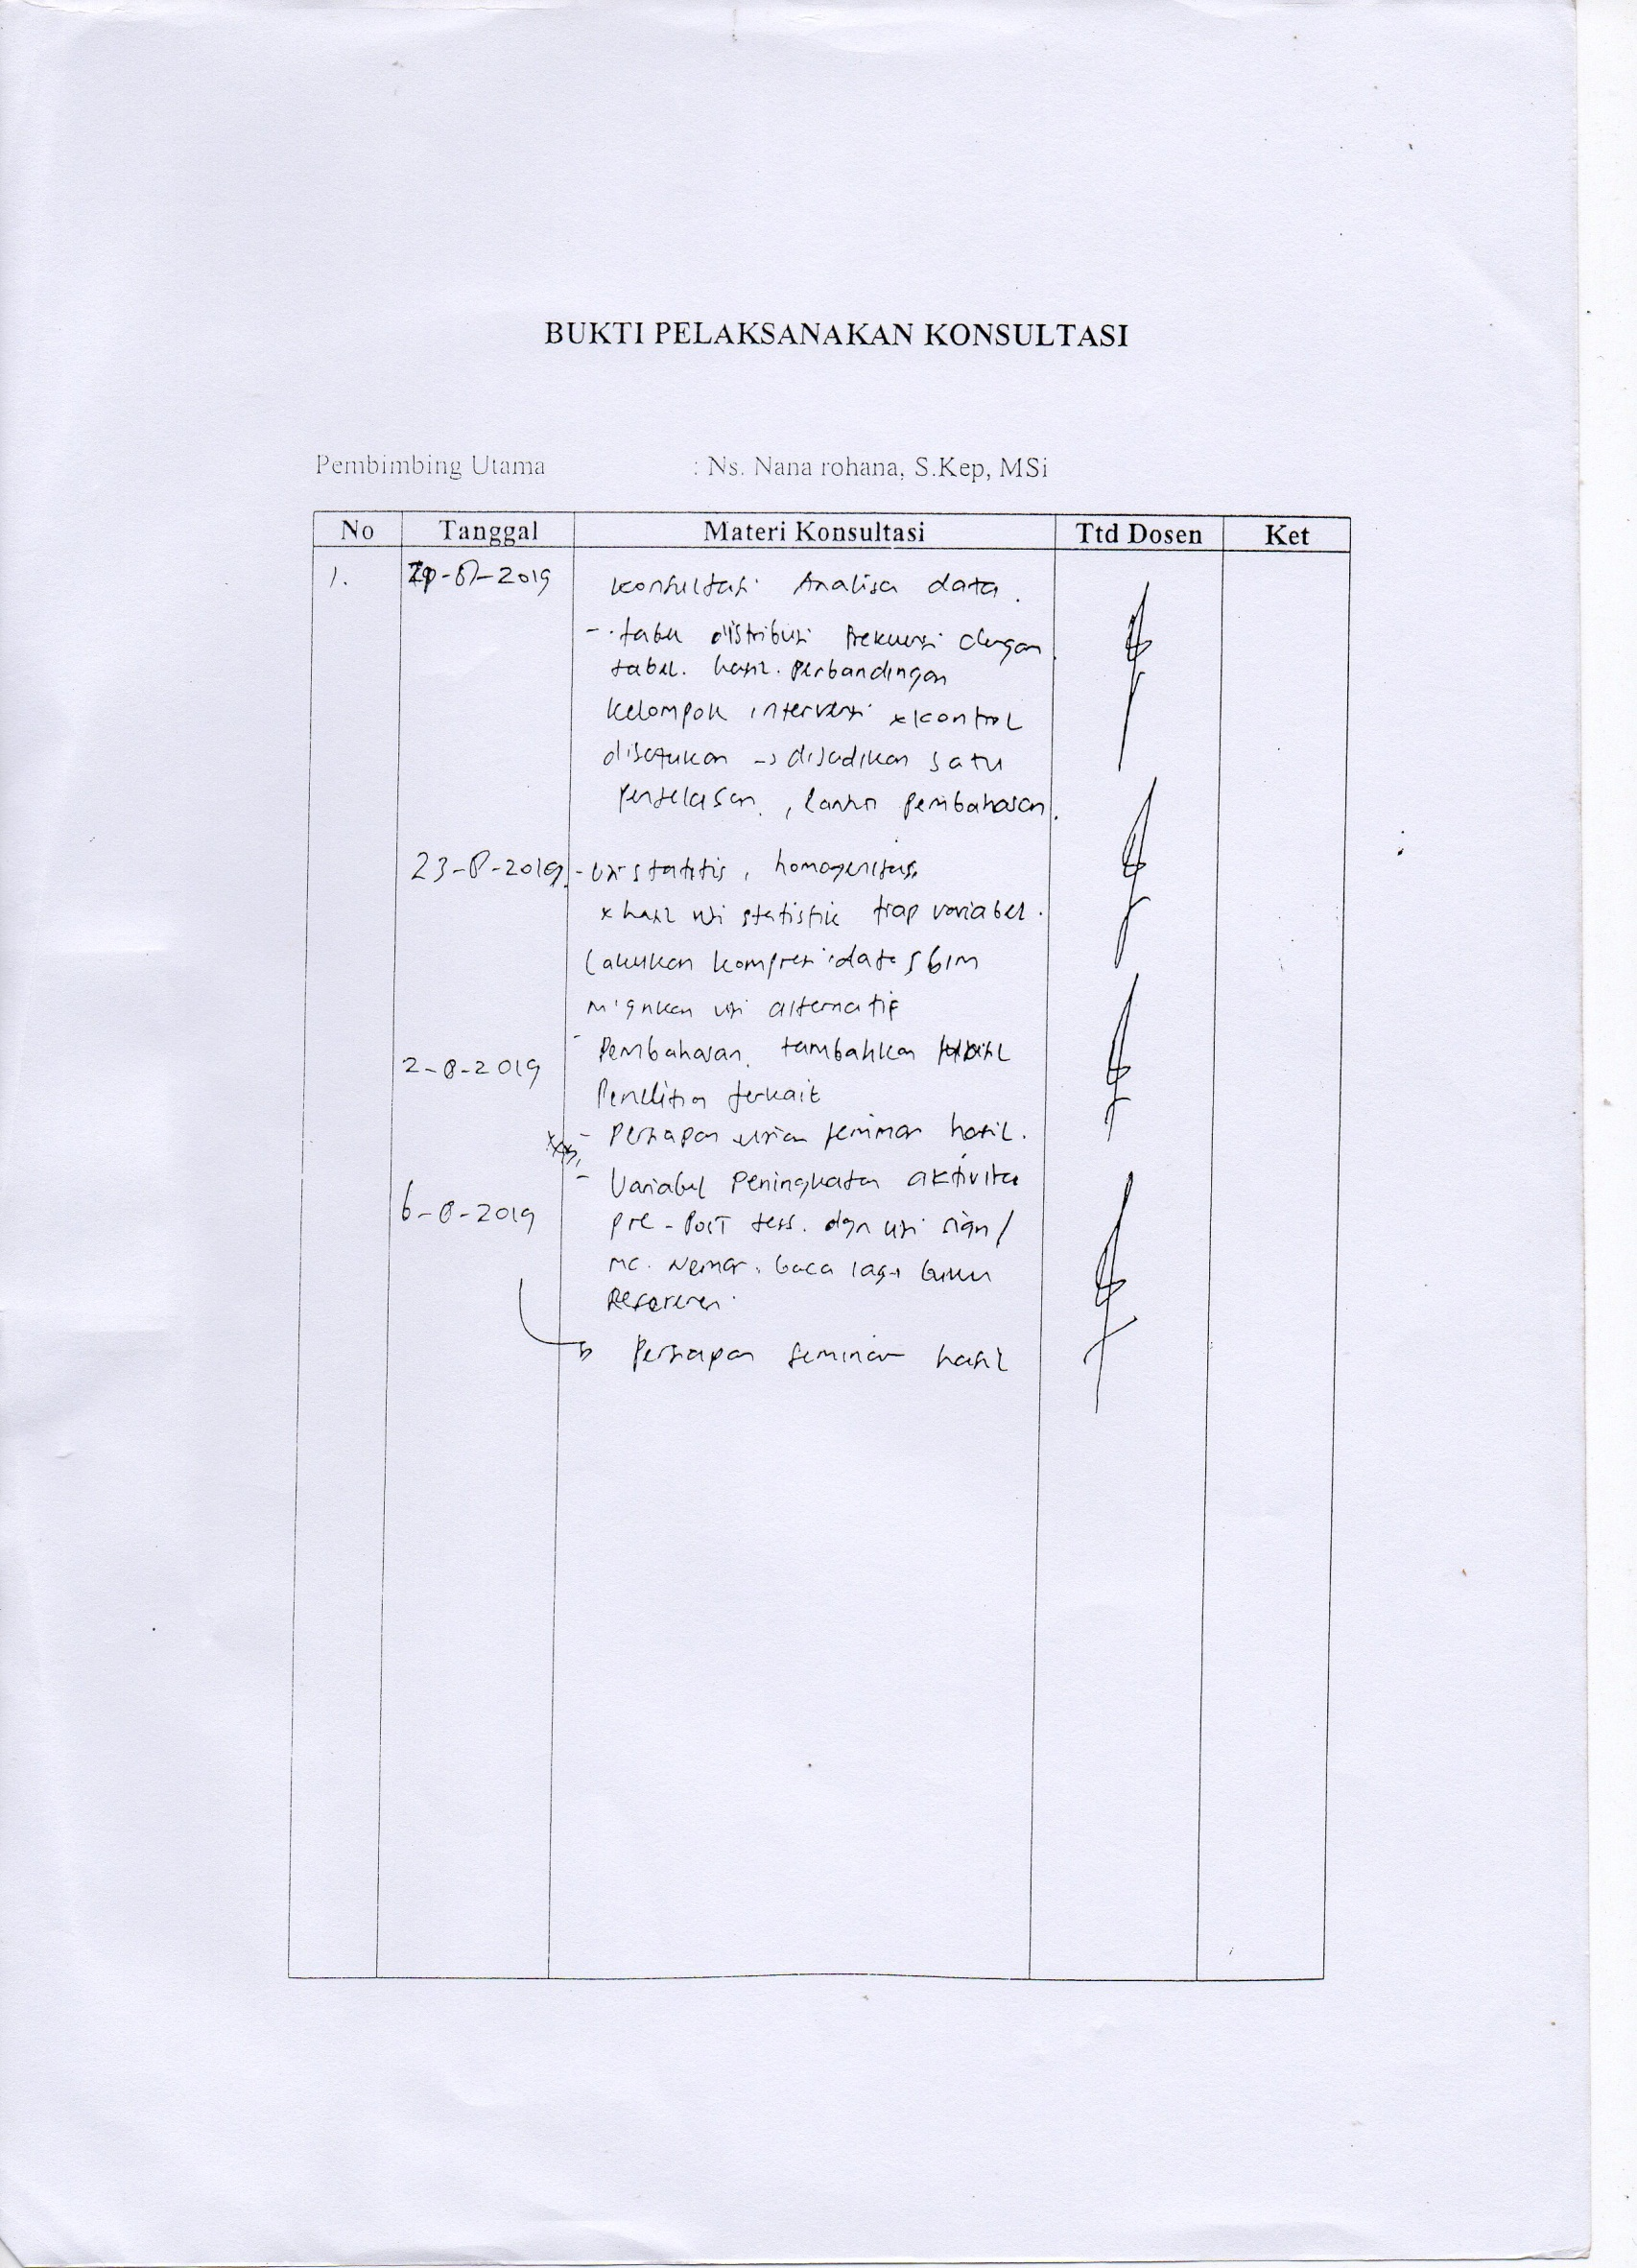 BUKTI PELAKSANAKAN KONSULTASI
Pembimbing Utama : Ns. Nana rohana, S.Kep, MSi
No Tanggal Materi Konsultasi Ttd Dosen Ket
1. -2019 Konsultasi Analisa data.
- tabel distribusi Frekuensi dengan
tabel. hasil. Perbandingan
Kelompok intervensi kontrol
disatukan -> disadikan satu
Penjelasan, pembahasan.
23-8-2019 - statitis, homogenitas
hasil uji statistik tiap variabel.
Lakukan data sblm
uji alternatif
2-8-2019 - Pembahasan. tambahkan hasil
Penelitian terkait
- Persiapan seminar hasil.
6-8-2019 - Variabel Peningkatan aktivitas
pre-Post test. dgn uji sign/
mc. Nemar. baca lagi buku
Referensi.
Persiapan seminar hasil